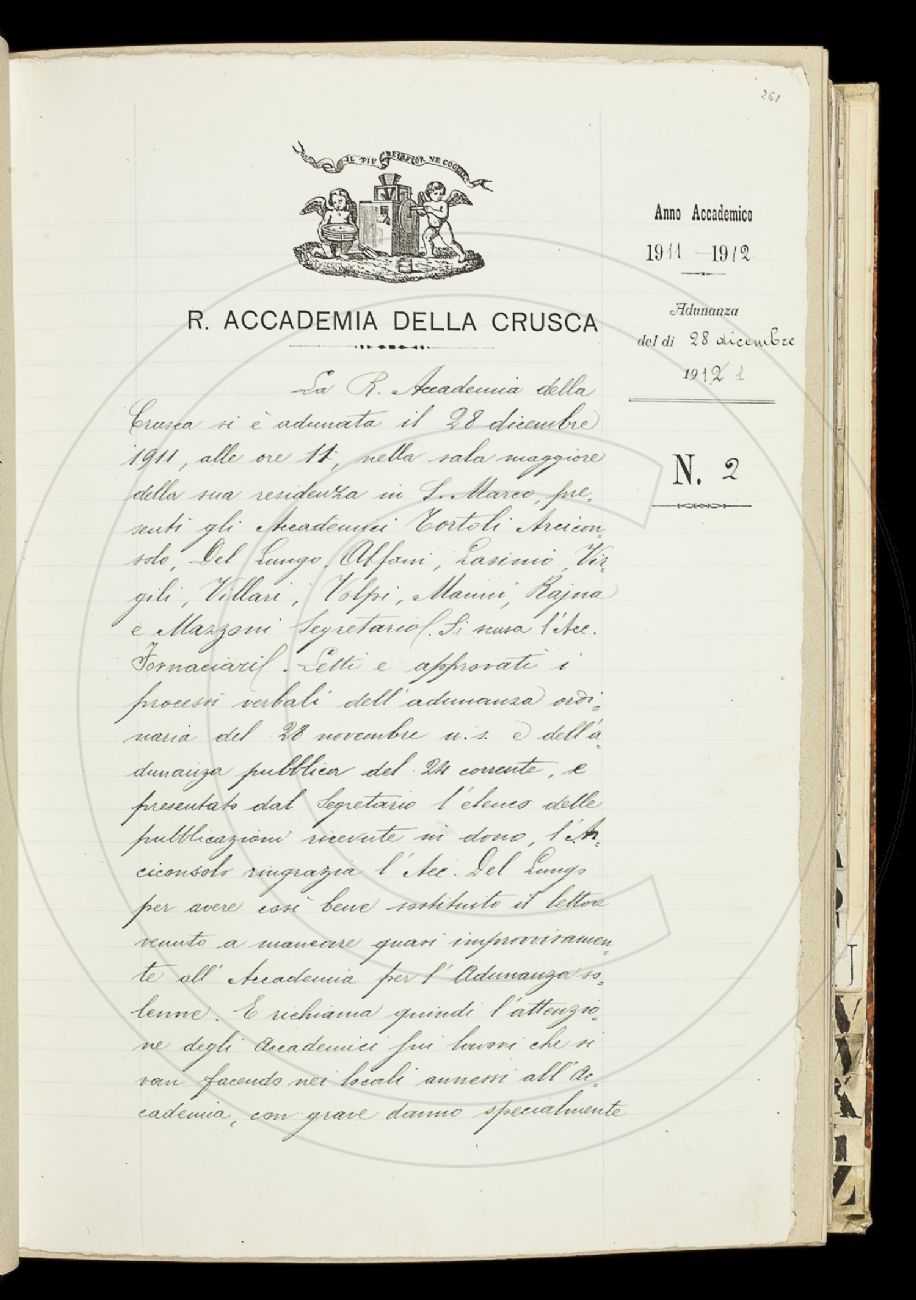 261
IL PIÙ BEL FIOR NE COGLIE
R. ACCADEMIA DELLA CRUSCA
Anno Accademico
1911 - 1912
Adunanza
del dì 28 dicembre
1912 1
N. 2
La R. Accademia della
Crusca si è adunata il 28 dicembre
1911, alle ore 11, nella sala maggiore
della sua residenza in S. Marco, pre=
senti gli Accademici Tortoli Arcicon=
solo, Del Lungo, Alfani, Lasinio, Vir=
gili, Villari, Volpi, Manni, Rajna
e Mazzoni Segretario. Si scusa l'Acc.
Fornaciari. Letti e approvati i
processi verbali dell'adunanza ordi=
naria del 28 novembre u. s. e dell'a=
dunanza pubblica del 24 corrente, e
presentato dal Segretario l'elenco delle
pubblicazioni ricevute in dono, l'Ar=
ciconsolo ringrazia l'Acc. Del Lungo
per avere così bene sostituito il lettore
venuto a mancare quasi improvvisamen=
te all'Accademia per l'Adunanza so=
lenne. E richiama quindi l'attenzio=
ne degli Accademici sui lavori che si
van facendo nei locali annessi all'Ac=
cademia, con grave danno specialmente